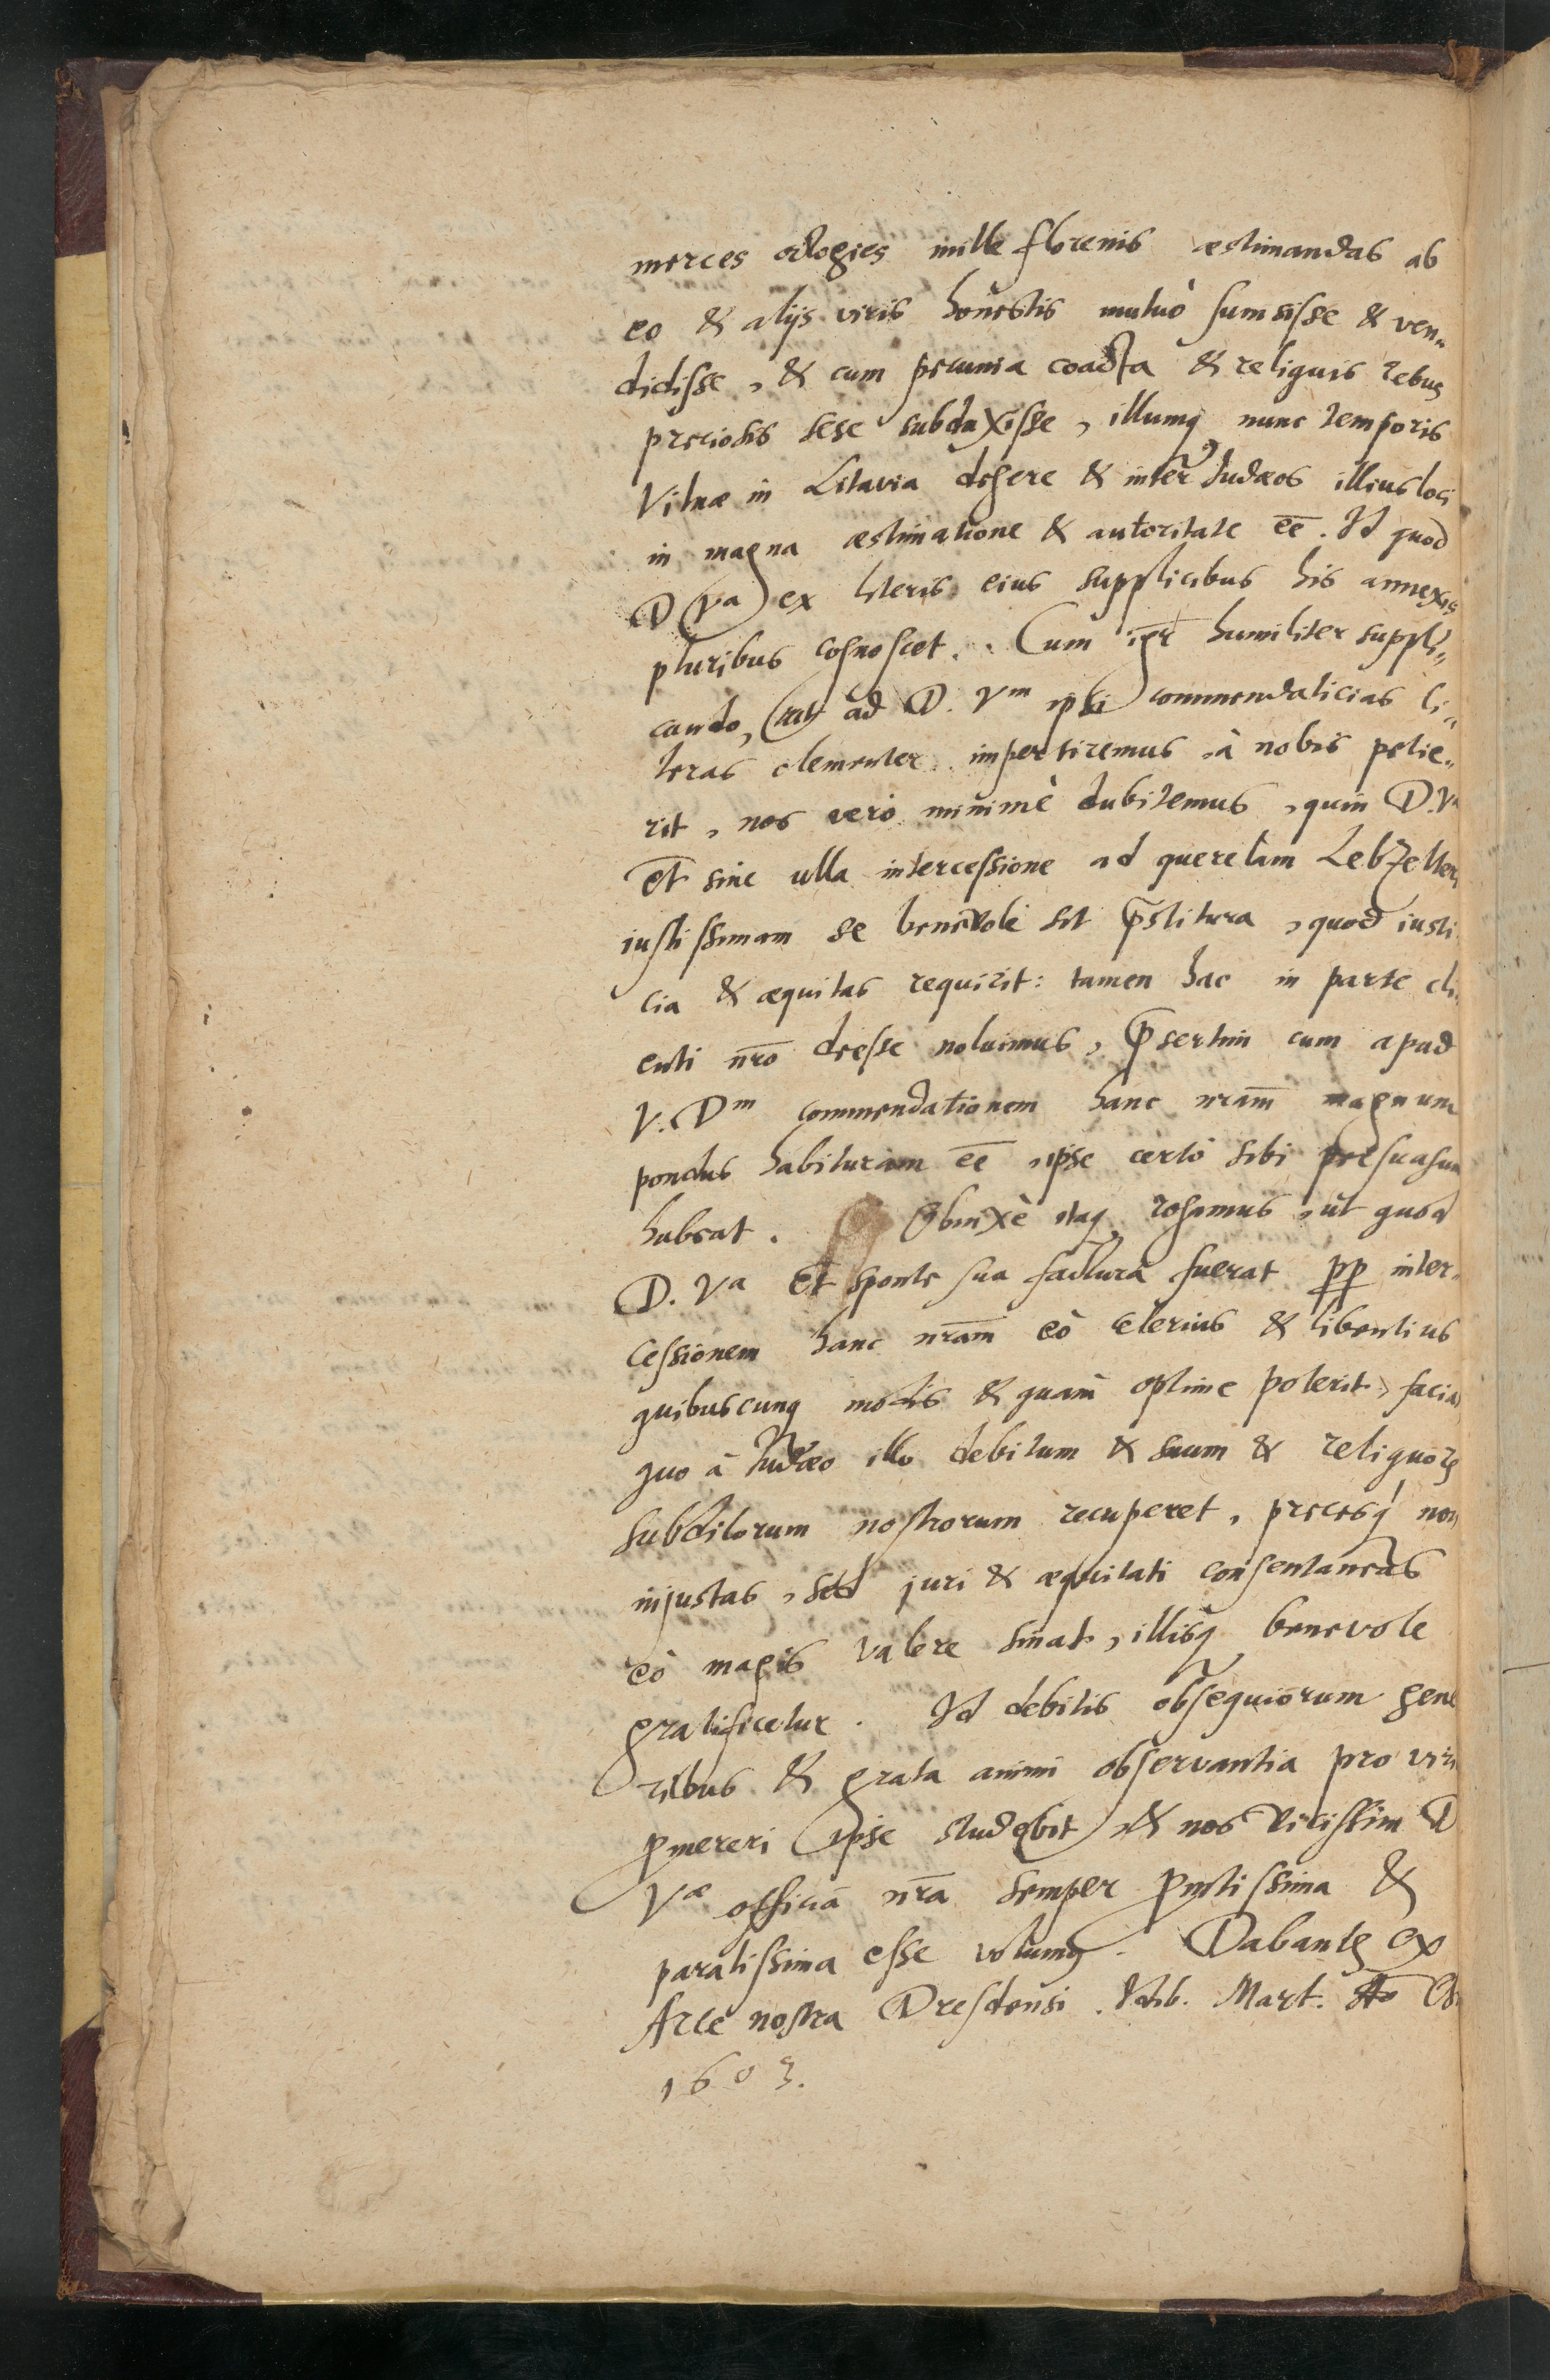 merces octogies mille florenis æstimandas ab
eo & alijs viris honestis mutuò sumsisse & ven„
didisse, & cum pecunia coacta & reliquis rebus
preciosis sese subduxisse, illumq nunc temporis
Vilnæ in Litavia degere & inter Judæos illius loci
in magna æstimatione & autoritate eē. Id quod
D Vᵃ ex literis eius supplicibus his annexis
pluribus cognoscet. Cum igr̄ humiliter suppli„
cando, ut ad D. Vᵐ ipsi commendaticias li„
teras clementer impertiremus, à nobis petie„
rit, nos verò minimè dubitemus, quin D. Vᵃ
et sine ulla intercessione ad querelam Lebzelteri
iustissimam se benevolè sit p̄stitura, quod iusti
cia & æquitas requirit: tamen hac in parte cli
enti nr̄o deesse noluimus, p̄sertim cum apud
V. Dᵐ commendationem hanc nr̄am magnum
pondus habituram eē, ipse certò sibi persuasum
habeat. Obnixè itaq rogamus, ut quod
D. Vᵃ et sponte sua factura fuerat pp inter„
cessionem hanc nr̄am eò celerius & libentius
quibuscunq modis & quam optime poterit, faciat
quo à Judæo illo debitum & suum & reliquoꝝ
subditorum nostrorum recuperet, precesq́ non
injustas, sed juri & æquitati consentaneas
eò magis valere sinat, illisq benevole
gratificetur. Id debitis obsequiorum gene
ribus & grata animi observantia pro viri
pmereri ipse studebit, & nos vicissim D
Vᵆ officia nr̄a semper pmtissima &
paratissima esse volumꝰ. Dabantꝭ ex
Arce nostra Dresdensi. Mart. Aō
1603.